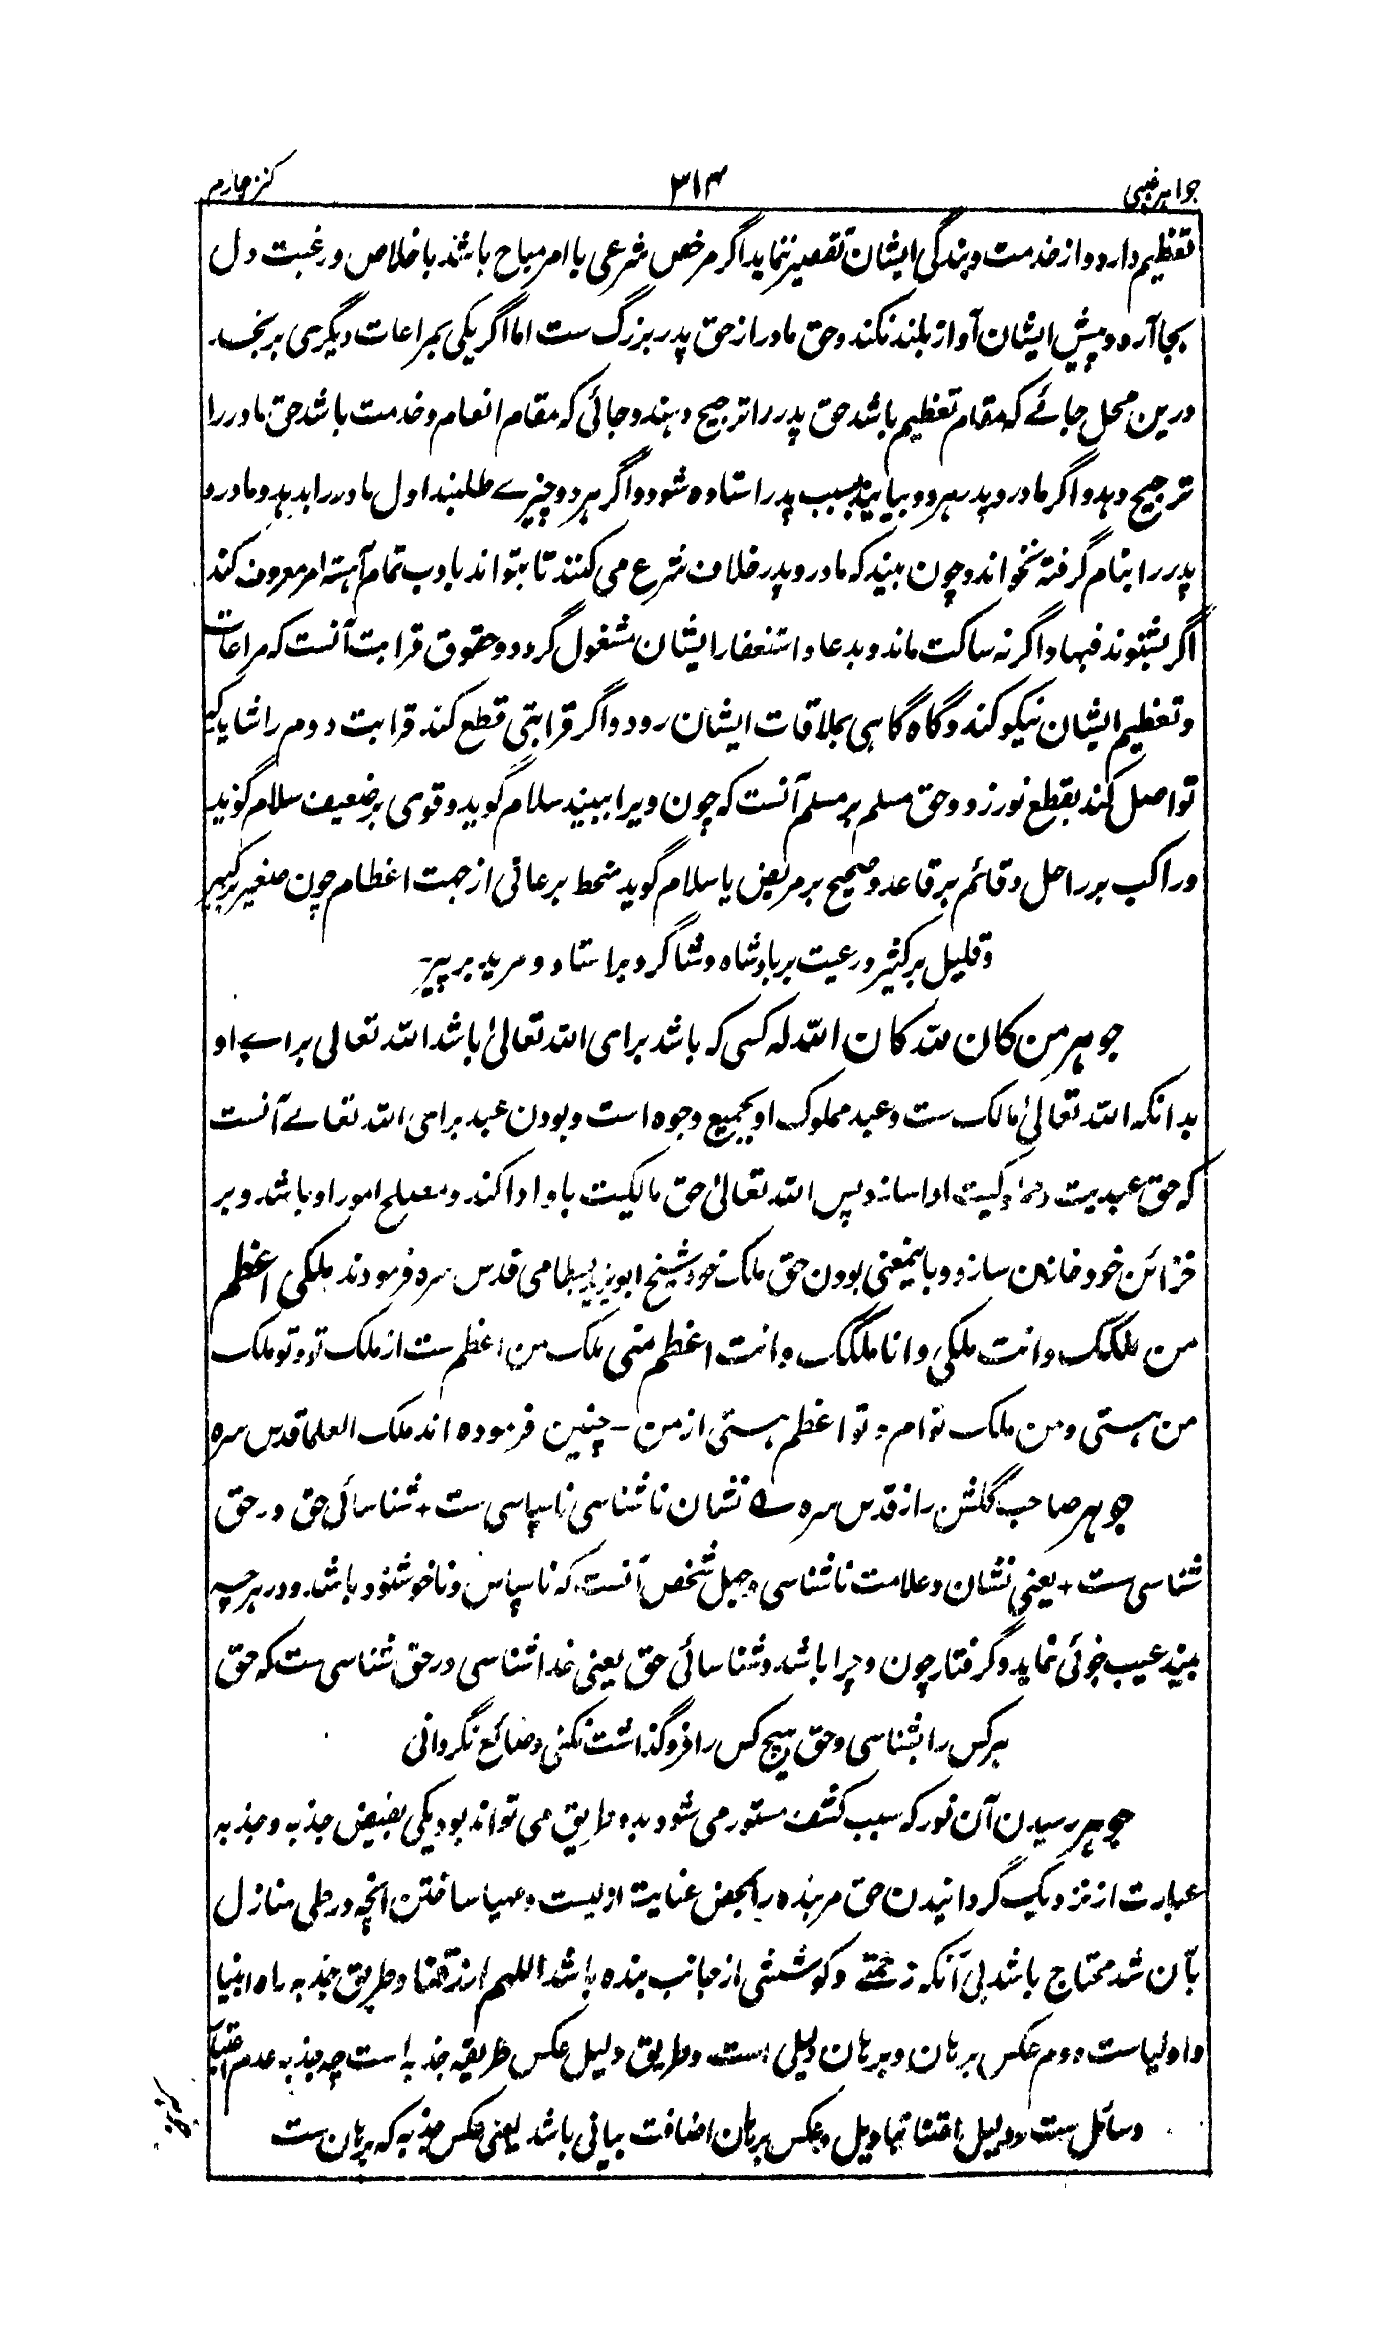 جواہر غیبی ۳۱۴ کنز چارم
تعظیم دارد و از خدمت و بندگی ایشان تقصیر ننماید اگر مرخص شرعی یا امر مباح باشد با خلاص و رغبت دل
بجا آرد و پیش ایشان آواز بلند نکند و حق مادر از حق پدر بزرگ ست اما اگر یکی بمراعات دیگری برنجد
درین محل جائے کہ مقام تعظیم باشد حق پدر را ترجیح دہند و جائی کہ مقام انعام و خدمت باشد حق مادر را
ترجیح دہد و اگر مادر و پدر ہر دو بیایند بسبب پدر استادہ شود و اگر ہر دو چیزے طلبند اول مادر را بدہد و مادر و
پدر را بنام گرفتہ نخواند و چون بیند کہ مادر و پدر خلاف شرع می کنند تا بتواند بادب تمام آہستہ امر معروف کند
اگر بشنوند فبہا و اگر نہ ساکت ماند و بدعا و استغفار ایشان مشغول گردد و حقوق قرابت آنست کہ مراعات
و تعظیم ایشان نیکو کند و گاہ گاہی بملاقات ایشان رود و اگر قرابتی قطع کند قرابت دوم را شاید کہ
تواصل کند بقطع نورزد و حق مسلم بر مسلم آنست کہ چون ویرا ببیند سلام گوید و قوی بر ضعیف سلام گوید
و راکب بر راحل و قائم بر قاعد و صحیح بر مریض یا سلام گوید منحط بر عالی از جہت اعظام چون صغیر بر کبیر
و قلیل بر کثیر و رعیت بر بادشاہ و شاگرد بر استاد و مرید بر پیر
جوہر من کان للہ کان اللہ لہ کسی کہ باشد برای اللہ تعالیٰ باشد اللہ تعالی براے او
بدانکہ اللہ تعالیٰ مالک ست و عبد مملوک او بجمیع وجوہ است و بودن عبد برای اللہ تعالے آنست
کہ حق عبدیت ادا سازد پس اللہ تعالیٰ حق مالکیت باو ادا کند و مصلح امور او باشد و بر
خزائن خود خازن سازد و باینمعنی بودن حق ملک خود شیخ ابویزید بسطامی قدس سرہ فرمودند ملکی اعظم
من ملکک و انت ملکی و انا ملکک و انت اعظم منی ملک من اعظم ست از ملک تو و تو ملک
من ہستی و من ملک تو ام و تو اعظم ہستی از من – چنین فرمودہ اند ملک العلما قدس سرہ
جوہر صاحب گلشن راز قدس سرہ ے نشان ناشناسی ناسپاسی ست + شناسائی حق در حق
شناسی ست + یعنی نشان و علامت ناشناسی و جہل شخص آنست کہ ناسپاس و ناخوشنود باشد و در ہر چہ
بیند عیب جوئی نماید و گرفتار چون و چرا باشد و شناسائی حق یعنی خدا شناسی در حق شناسی ست کہ حق
ہر کس را بشناسی و حق ہیچ کس را فرو گذاشت نکنی و ضائع نگردانی
جوہر رسیدن آن نور کہ سبب کشف مستور می شود بدو طریق می تواند بود یکی بفیض جذبہ و جذبہ
عبارت از نزدیک گردانیدن حق مر بندہ را بمحض عنایت اولیست و مہیا ساختن آنچہ در طی منازل
بآن شد محتاج باشد بی آنکہ زحمتے و کوششی از جانب بندہ باشد اللہم ارزقنا و طریق جذبہ راہ انبیا
و اولیاست دوم عکس برہان و برہان دلیل است و طریق دلیل عکس طریقہ جذبہ است چہ جذبہ عدم احتیاج
وسائل ست و دلیل اقتضا و عکس برہان اضافت بیانی باشد یعنی عکس جذبہ کہ برہان ست